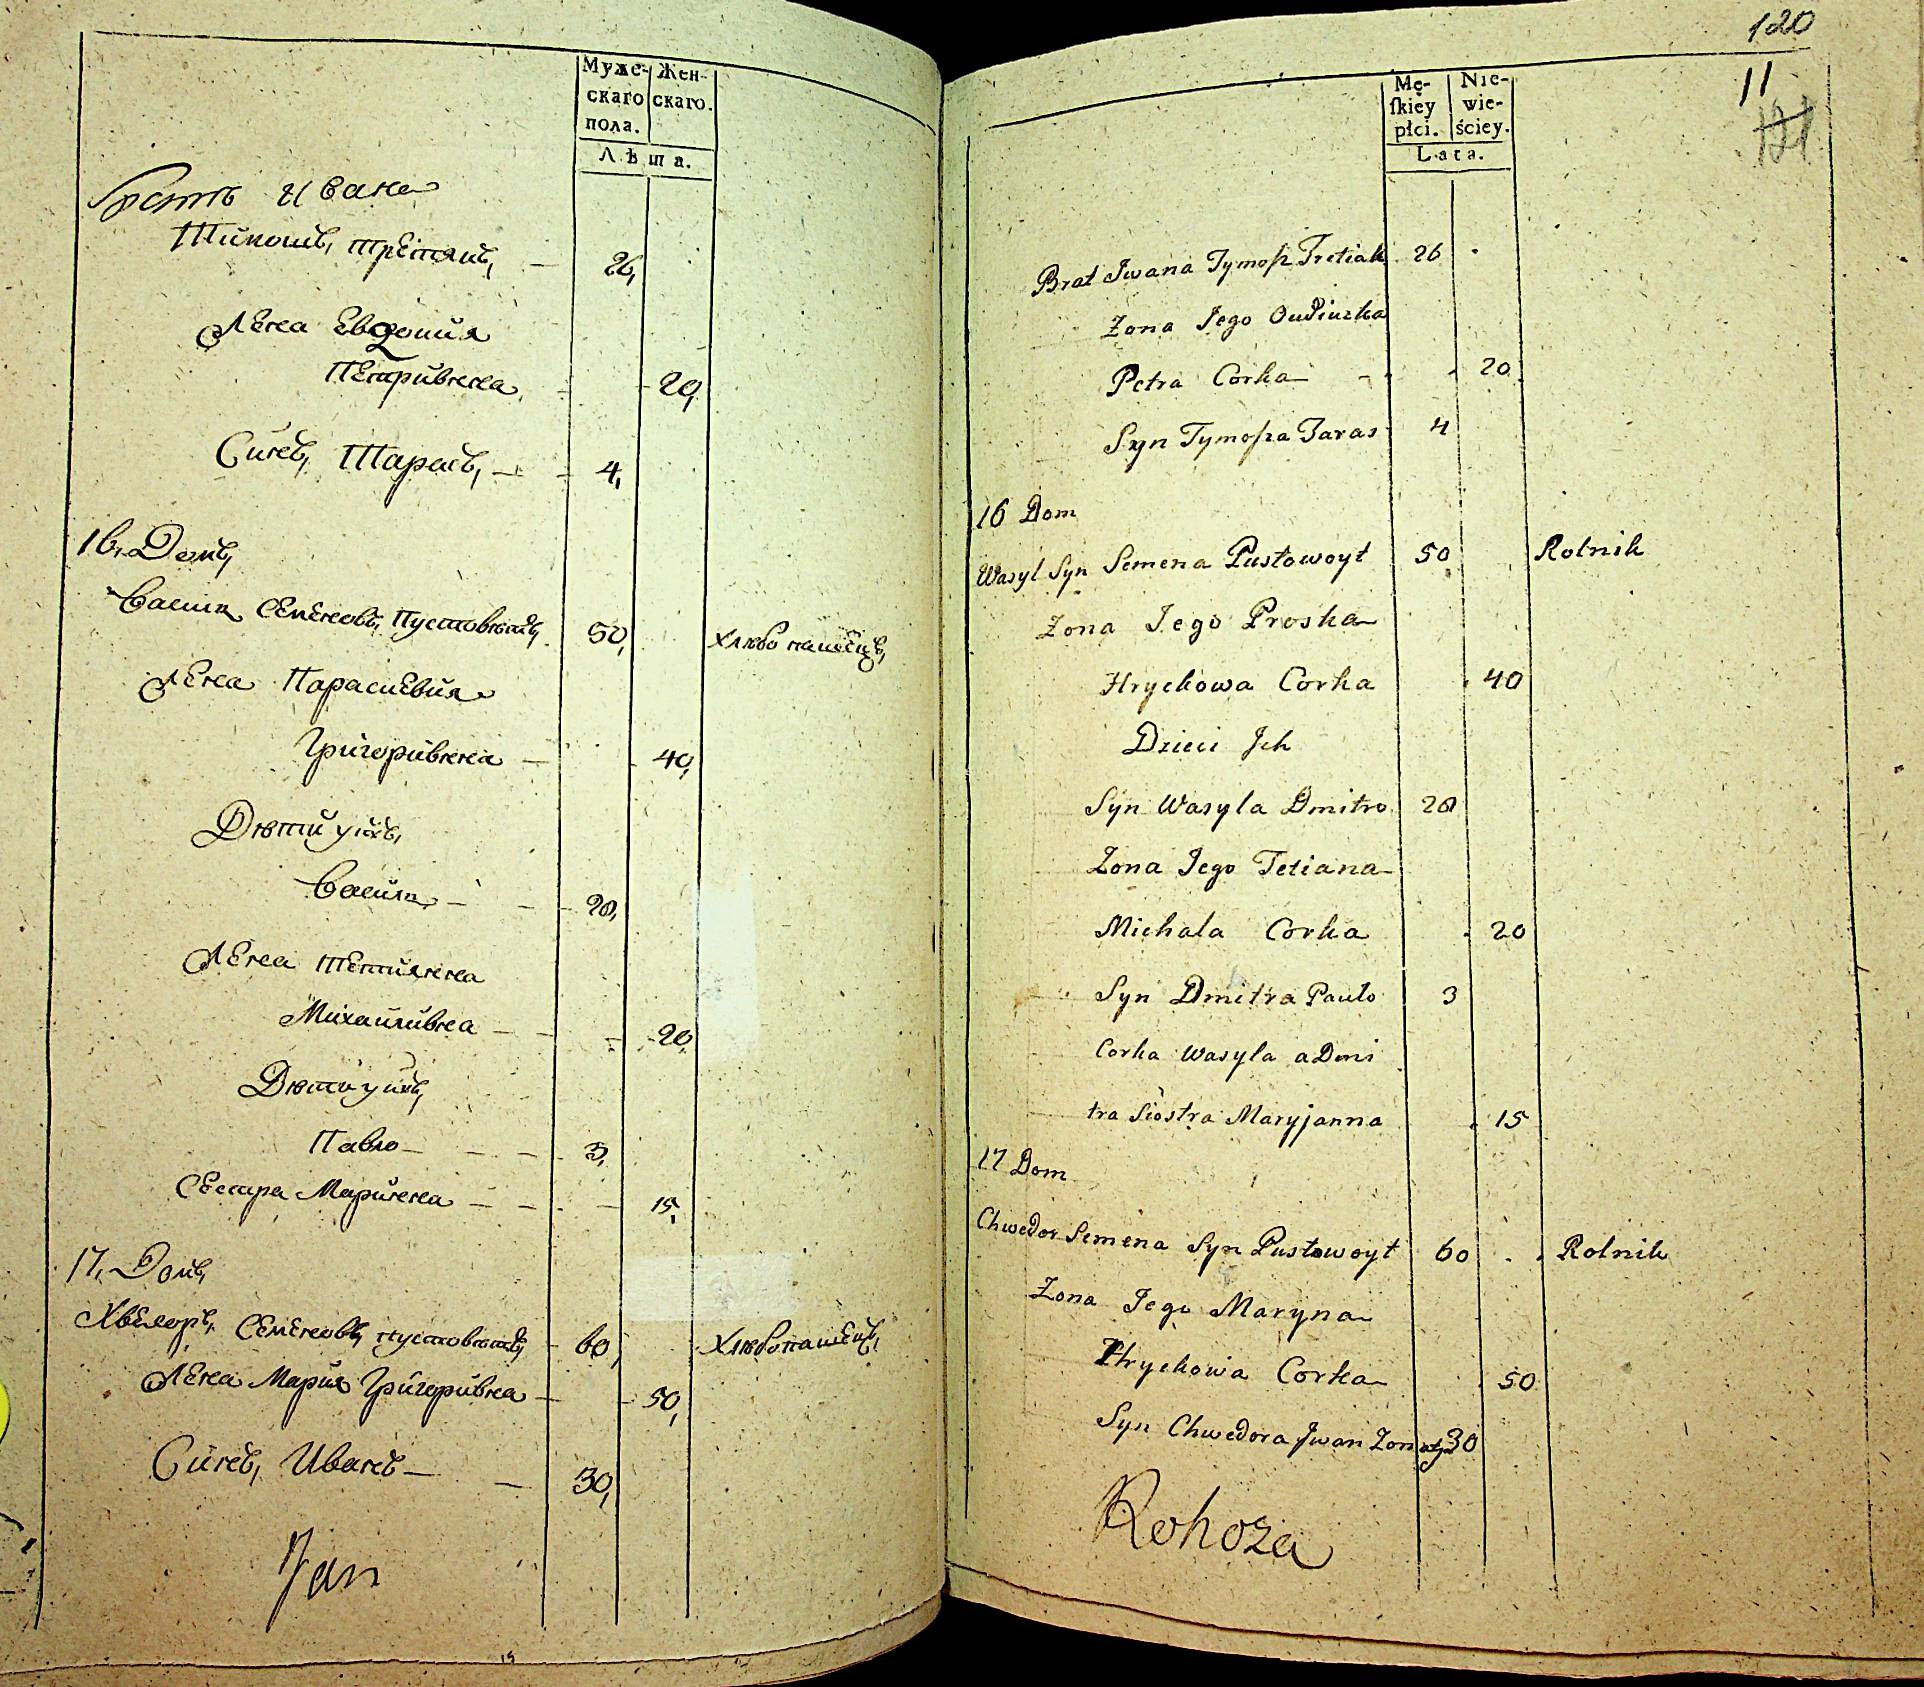 Муже-
скаго
пола.
Жен-
скаго.
Лѣта.
братъ Ивана
Тимошъ, третякъ, 26,
Жена Евдокия
Петривнна 20,
Синъ, Тарасъ, 4,
16, Домъ,
Василь Семеновъ, Пустовнтъ, 50, хлѣбопашецъ,
Жена Параскевия
Григоривнна 40,
Дѣти ихъ,
Василь 20,
Жена Тетиянна
Михаиливна 20,
Дѣти ихъ,
Павло 3,
Сестра Маринна 15,
17, Домъ,
Хведоръ, Семеновъ, пустовнтъ, 60, Хлѣбопашецъ,
Жена Мария Григоривна 50,
Синъ, Иванъ 30,
Jan
120
11
121
Mę-
ſkiey
płci.
Nie-
wie-
ściey.
Lata.
Brat Jwana Tymoſz Tretiak 26
Zona Jego Oudiuzka
Petra Corka 20
Syn Tymoſza Taras 4
16 Dom
Wasyl Syn Semena Pustowoyt 50 Rolnik
Zona Jego Proska
Hryckowa Corka 40
Dzieci Jch
Syn Wasyla Dmitro 20
Zona Jego Tetiana
Michala Corka 20
Syn Dmitra Pauło 3
Corka Wasyla a Dmi
tra Siostra Maryjanna 15
17 Dom
Chwedor Semena Syn Pustowoyt 60 Rolnik
Zona Jego Maryna
Hryckowa Corka 50
Syn Chwedora Jwan Zonaty 30
Rohoza